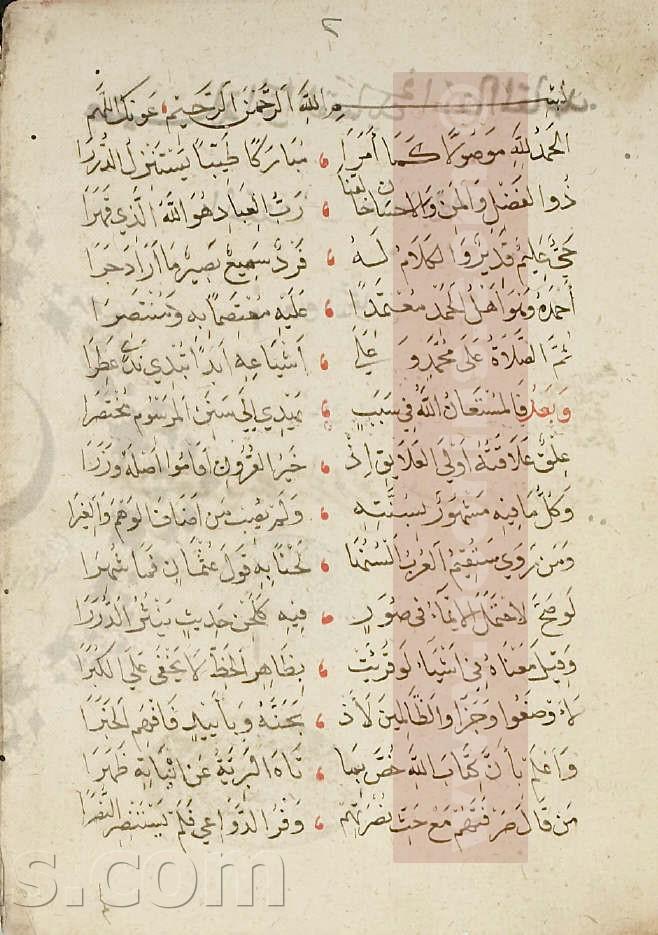 ٢
بسم الله الرحمن الرحيم عونك اللهم
الحمد لله موصولا كما أمرا ، مباركا طيبا يستنزل الدررا
ذو الفضل والمن والاحسان خالقنا ، رب العباد هو الله الذي قهرا
حي عليم قدير والكلام له ، فرد سميع بصير ما اراد جرا
أحمده وهو اهل الحمد معتمدا ، عليه معتصما به ومنتصرا
ثم الصلاة على محمد وعلى ، اشياعه ابدا تندي ندى عطرا
وبعد فالمستعان الله في سبب ، يهدي الى سنن المرسوم مختصرا
علق علاقته اولى العلايق اذ ، خير القرون اقاموا اصله وزرا
وكل ما فيه مشهور بسنته ، ولم يصب من اضاف الوهم والغيرا
ومن روى ستقيم العرب السنها ، لحنا به قول عثمان فما شهرا
لو صح لاحتمل الايماء في صور ، فيه كلحن حديث ينثر الدررا
وقيل معناه في اشياء لو قرئت ، بظاهر الخط لا تخفى على الكبرا
لا اوضعوا وجزاؤا الظالمين لا اذ ، بحنه وبأييد فافهم الخبرا
واعلم بأن كتاب الله خص بما ، تاه البرية عن اتيانه ظهرا
من قال صرفتهم مع حث نصرتهم ، وفر الدواعي فلم يستنصر النصرا
s.com